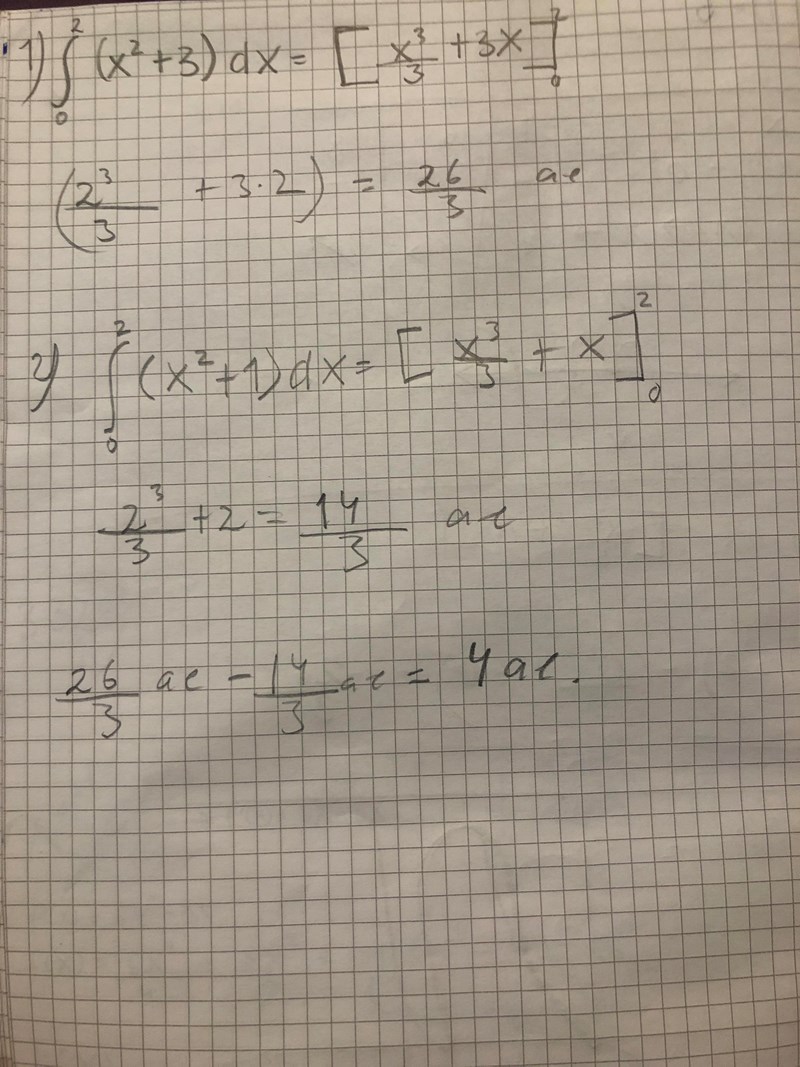 1) ∫₀² (x² + 3) dx = [x³/3 + 3x]₀²
(2³/3 + 3·2) = 26/3 ae
2) ∫₀² (x² + 1) dx = [x³/3 + x]₀²
2³/3 + 2 = 14/3 ae
26/3 ae - 14/3 ae = 4 ae.